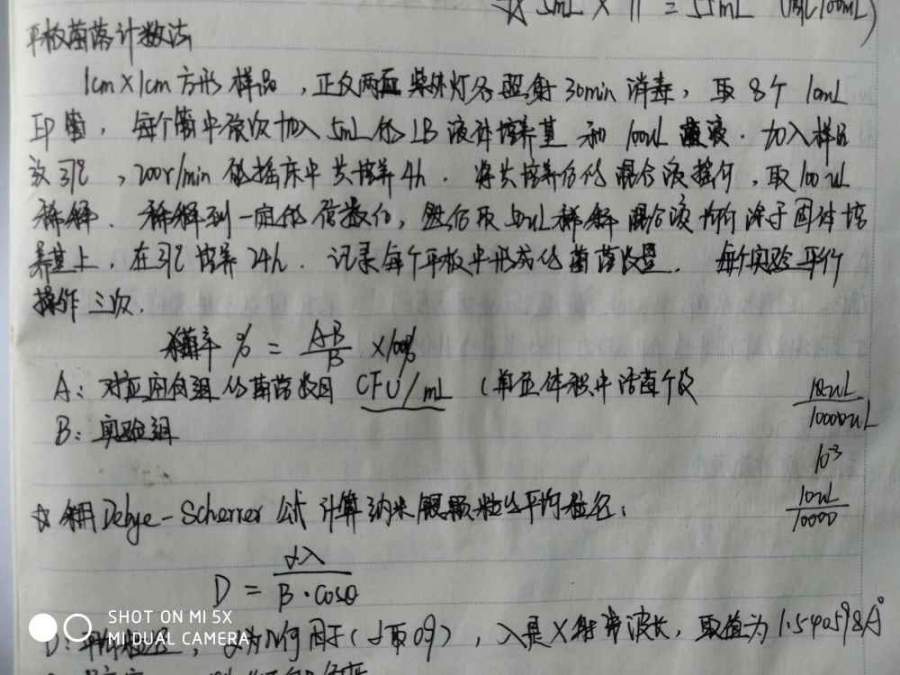 ☆ 5mL × 11 = 55mL (100mL)
平板菌落计数法
1cm×1cm方形样品，正反两面紫外灯各照射30min消毒，取8个10mL
管，每个管中依次加入5mL的LB液体培养基和100uL菌液．加入样品
放37℃，200r/min的摇床中共培养4h．将共培养后的混合液摇匀，取100uL
稀释．稀释到一定的倍数后，然后取50uL稀释混合液均匀涂于固体培
养基上，在37℃培养24h．记录每个平板中形成的菌落数量．每个实验平行
操作三次．
抑菌率% = A-B/B ×100%
A：对应空白组的菌落数目 CFU/mL（单位体积中活菌个数
B：实验组
10uL/10000uL
10⁻³
10uL/10000
☆ 利用Debye-Scherrer公式计算纳米银颗粒的平均粒径：
D = αλ/B·cosθ
SHOT ON MI 5X
MI DUAL CAMERA
D：，α为几何因子（α取0.9），λ是X射线波长，取值为1.540598Å